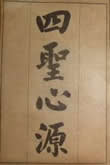 四聖心源